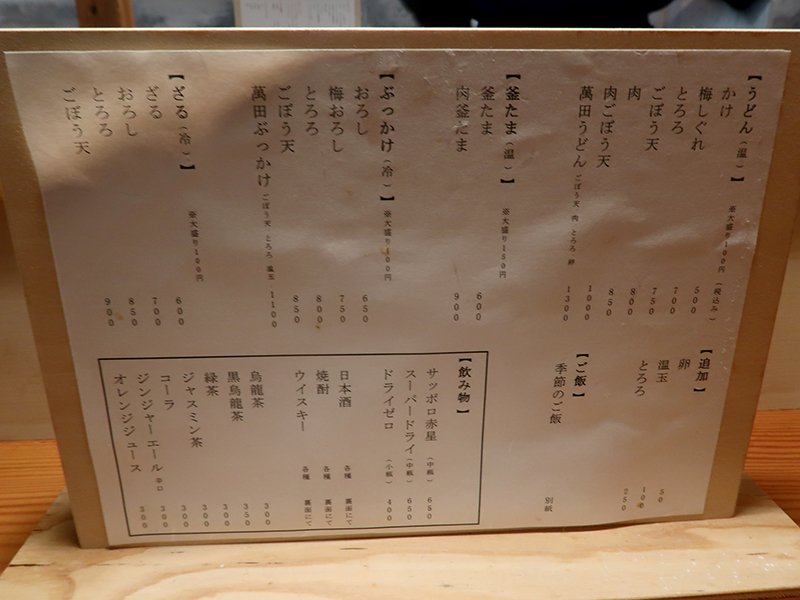 【うどん（温）】 ※大盛り100円 （税込み）
かけ 500
梅しぐれ 700
とろろ 750
ごぼう天 800
肉 850
肉ごぼう天 1000
萬田うどん ごぼう天 肉 とろろ 卵 1300
【釜たま（温）】 ※大盛り150円
釜たま 600
肉釜たま 900
【ぶっかけ（冷）】 ※大盛り100円
おろし 650
梅おろし 750
とろろ 800
ごぼう天 850
萬田ぶっかけ ごぼう天 とろろ 温玉 1100
【ざる（冷）】 ※大盛り100円
ざる 600
おろし 700
とろろ 850
ごぼう天 900
【追加】
卵 50
温玉 100
とろろ 250
【ご飯】
季節のご飯 別紙
【飲み物】
サッポロ赤星 （中瓶） 650
スーパードライ （中瓶） 650
ドライゼロ （小瓶） 400
日本酒 各種 裏面にて
焼酎 各種 裏面にて
ウイスキー 各種 裏面にて
烏龍茶 300
黒烏龍茶 350
緑茶 300
ジャスミン茶 300
コーラ 300
ジンジャーエール 辛口 300
オレンジジュース 300